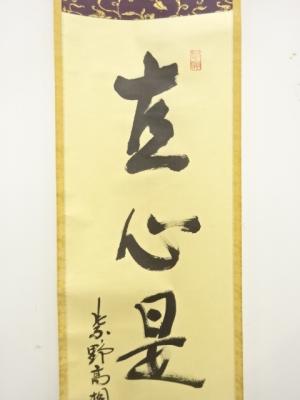 直心是
紫野高桐